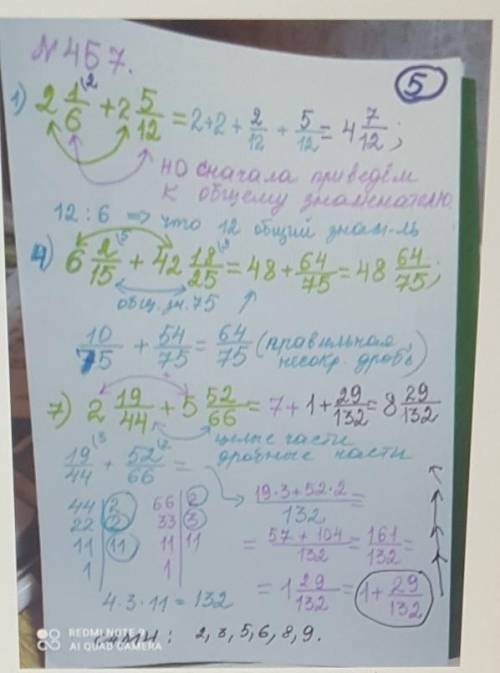 № 457.
5
1) 2 1/6 \2 + 2 5/12 = 2+2 + 2/12 + 5/12 = 4 7/12;
но сначала приведём
к общему знаменателю.
12 : 6 ⇒ что 12 общий знам-ль
4) 6 2/15 \5 + 42 18/25 \3 = 48 + 64/75 = 48 64/75;
общ. зн. 75
10/75 + 54/75 = 64/75 (правильная
несокр. дробь)
7) 2 19/44 + 5 52/66 = 7 + 1 + 29/132 = 8 29/132
целые части
дробные части
19/44 \3 + 52/66 \2 =
19·3+52·2/132 =
44 | 2 66 | 2
22 | 2 33 | 3
11 | 11 11 | 11
1 1
= 57 + 104/132 = 161/132 =
= 1 29/132 = 1 + 29/132
4·3·11 = 132
REDMI NOTE 9
AI QUAD CAMERA
сами: 2, 3, 5, 6, 8, 9.